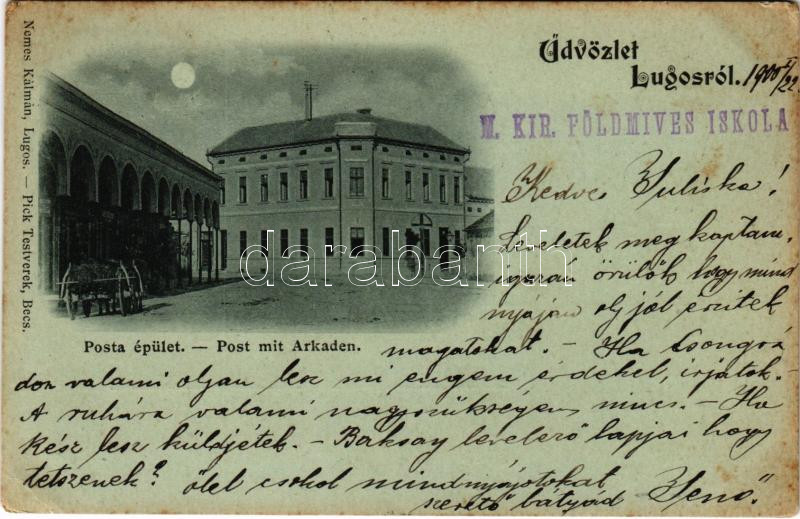 Üdvözlet
Lugosról. 1900 II/22.
M. KIR. FÖLDMIVES ISKOLA
Nemes Kálmán, Lugos. — Pick Testverek, Becs.
Posta épület. — Post mit Arkaden.
darabanth
Kedves Juliska!
Leveletek meg kaptam,
igazán örülök hogy mind
nyájan oly jól érzitek
magatokat. - Ha Csongrá
don valami olyan lesz mi engem érdekel, irjatok. -
A ruhára valami nagy szükségem nincs. - Ha
kész lesz küldjétek. - Baksay levelező lapjai hogy
tetszenek? ölel csokol mindnyájotokat
szerető bátyád Jenő."